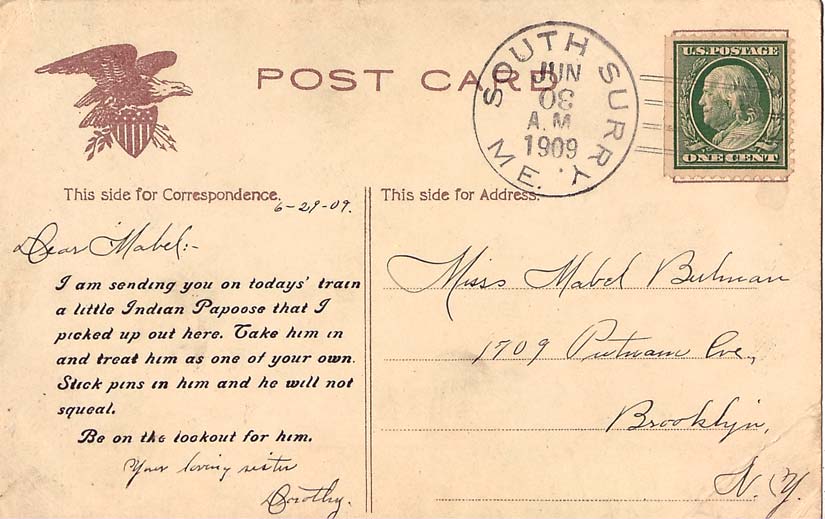 POST CARD
SOUTH SURRY
JUN
AM
1909
ME.
U.S. POSTAGE
ONE CENT
This side for Correspondence.
6-29-09.
Dear Mabel:-
I am sending you on todays' train
a little Indian Papoose that I
picked up out here. Take him in
and treat him as one of your own.
Stick pins in him and he will not
squeal.
Be on the lookout for him.
Your loving sister
Dorothy.
This side for Address.
Miss Mabel
1709 Putnam Ave,
Brooklyn,
N.Y.